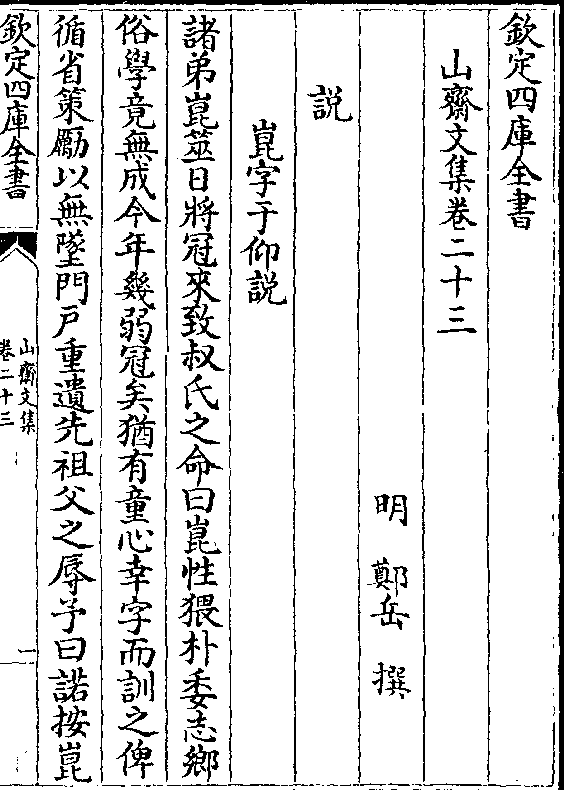 欽定四庫全書
山齋文集卷二十三
明 鄭岳 撰
説
崑字于仰説
諸弟崑筮日將冠來致叔氏之命曰崑性猥朴委志鄉
俗學竟無成今年幾弱冠矣猶有童心幸字而訓之俾
循省策勵以無墜門戸重遺先祖父之辱予曰諾按崑
欽定四庫全書
山齋文集
卷二十三
一